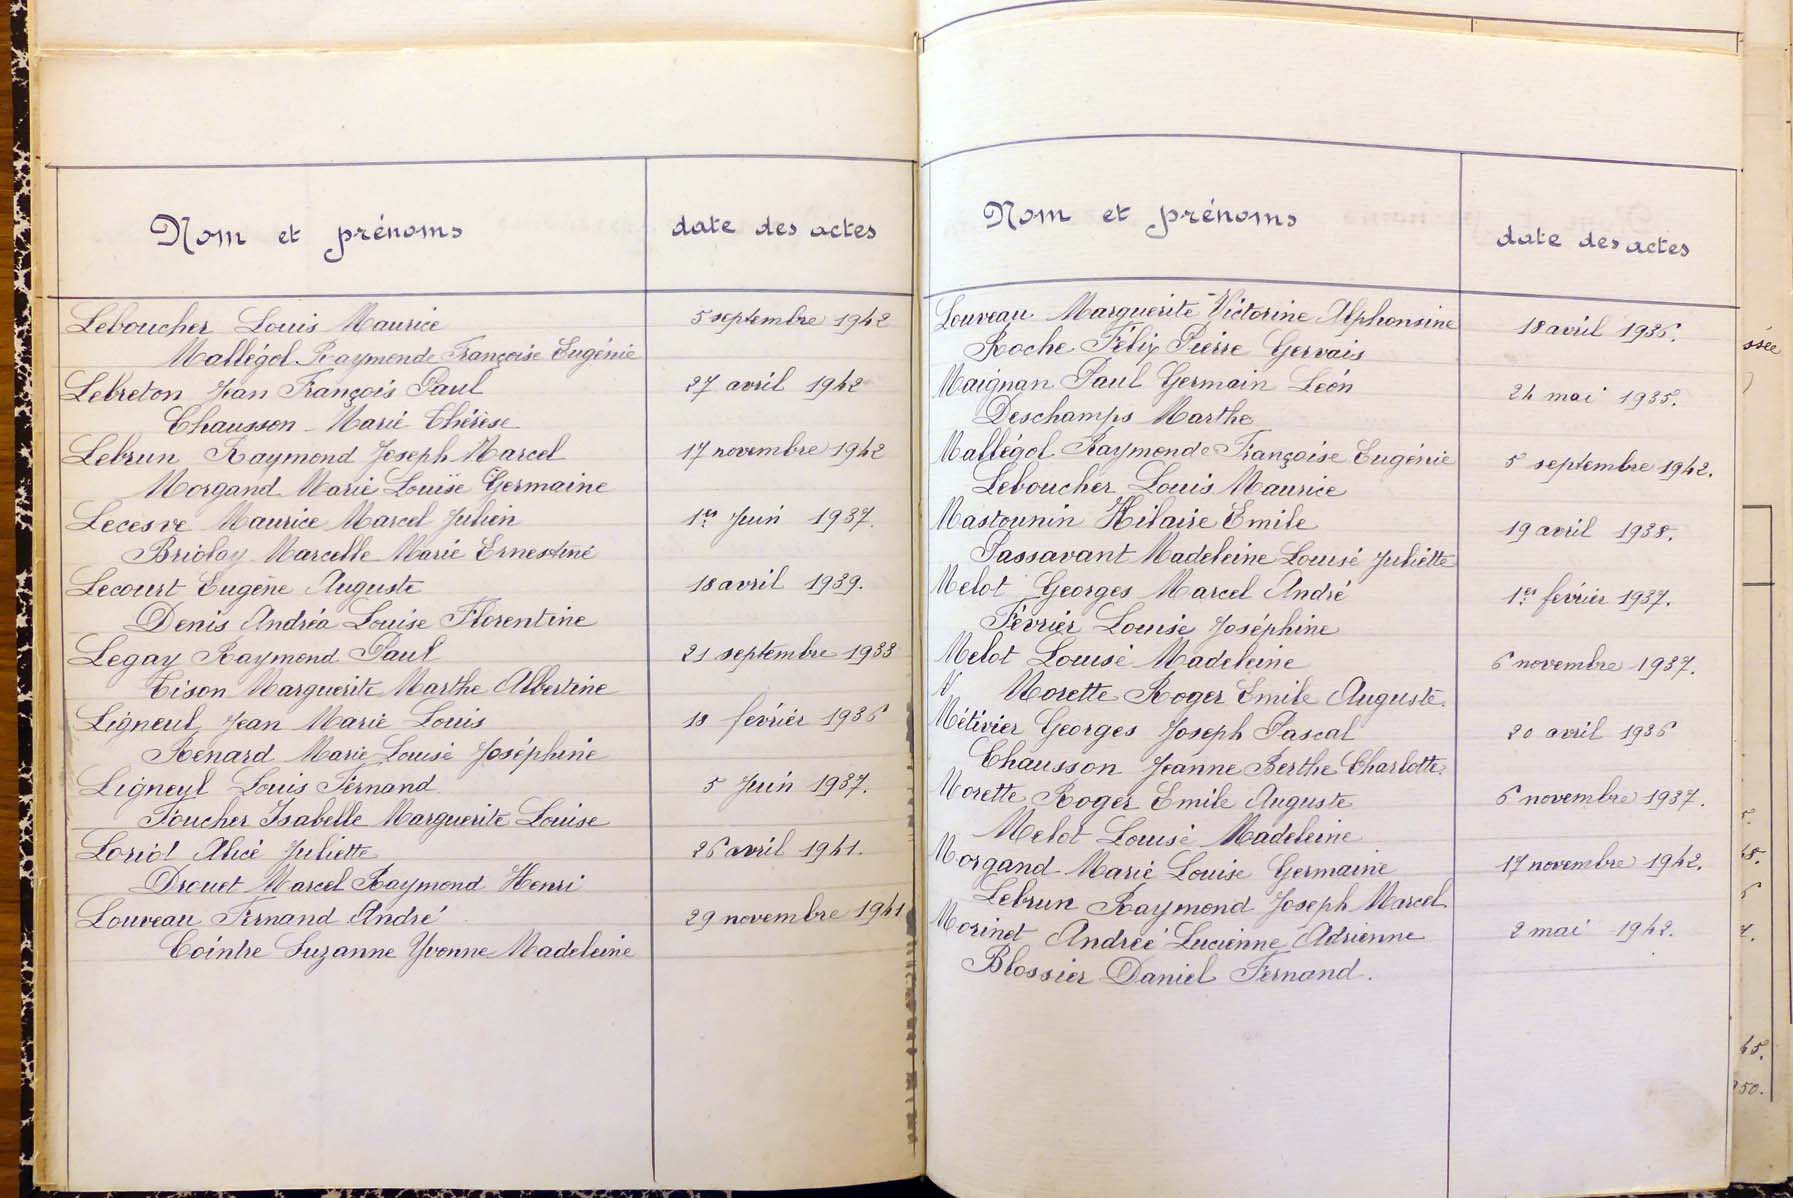 Nom et prénoms date des actes
Leboucher Louis Maurice 5 septembre 1942
Mallégol Raymonde Françoise Eugénie
Lebreton Jean François Paul 27 avril 1942
Chausson Marie Thérèse
Lebrun Raymond Joseph Marcel 17 novembre 1942
Morgand Marie Louise Germaine
Lecesve Maurice Marcel Julien 1er Juin 1937.
Briolay Marcelle Marie Ernestine
Lecourt Eugène Auguste 18 avril 1939.
Denis Andréa Louise Florentine
Legay Raymond Paul 21 septembre 1933
Tison Marguerite Marthe Albertine
Ligneul Jean Marie Louis 18 février 1936
Renard Marie Louise Joséphine
Ligneul Louis Fernand 5 Juin 1937.
Foucher Isabelle Marguerite Louise
Loriot Alice Juliette 26 avril 1941.
Drouet Marcel Raymond Henri
Louveau Fernand André 29 novembre 1941
Cointre Suzanne Yvonne Madeleine
Nom et prénoms date des actes
Louveau Marguerite Victorine Alphonsine 18 avril 1936.
Roche Félix Pierre Gervais
Maignan Paul Germain Léon 24 mai 1935.
Deschamps Marthe
Mallégol Raymonde Françoise Eugénie 5 septembre 1942.
Leboucher Louis Maurice
Mastounin Hilaire Emile 19 avril 1938.
Passavant Madeleine Louise Juliette
Melot Georges Marcel André 1er février 1937.
Février Louise Joséphine
Melot Louise Madeleine 6 novembre 1937.
Morette Roger Emile Auguste
Métivier Georges Joseph Pascal 20 avril 1936
Chausson Jeanne Berthe Charlotte
Morette Roger Emile Auguste 6 novembre 1937.
Melot Louise Madeleine
Morgand Marie Louise Germaine 17 novembre 1942.
Lebrun Raymond Joseph Marcel
Morinet Andréé Lucienne Adrienne 2 mai 1942.
Blossier Daniel Fernand.